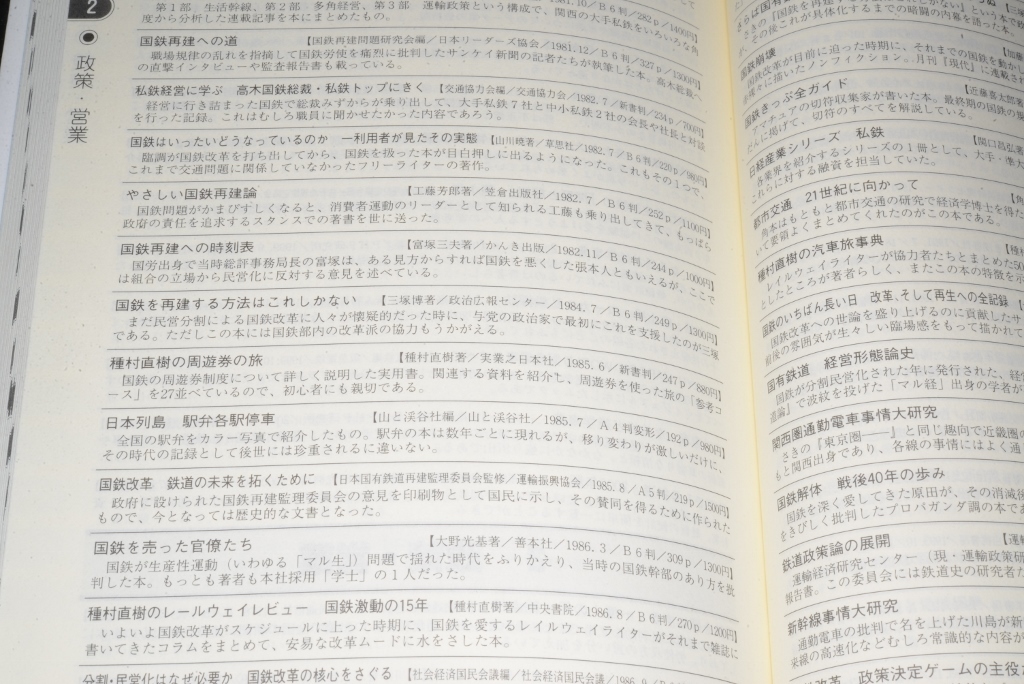 2
政策・営業
第1部 生活幹線、第2部 多角経営、第3部 運輸政策という構成で、関西の大手私鉄をいろいろな角
度から分析した連載記事を本にまとめたもの。
国鉄再建への道 【国鉄再建問題研究会編／日本リーダーズ協会／1981.12／B6判／327p／1300円】
職場規律の乱れを指摘して国鉄労使を痛烈に批判したサンケイ新聞の記者たちが執筆した本。高木総裁へ
の直撃インタビューや監査報告書も載っている。
私鉄経営に学ぶ 高木国鉄総裁・私鉄トップにきく 【交通協力会編／交通協力会／1982.7／新書判／234p／700円】
経営に行き詰まった国鉄で総裁みずからが乗り出して、大手私鉄7社と中小私鉄2社の会長や社長と対談
を行った記録。これはむしろ職員に聞かせたかった内容であろう。
国鉄はいったいどうなっているのか 一利用者が見たその実態 【山川暁著／草思社／1982.7／B6判／220p／980円】
臨調が国鉄改革を打ち出してから、国鉄を扱った本が目白押しに出るようになった。これもその1つで、
これまで交通問題に関係していなかったフリーライターの著作。
やさしい国鉄再建論 【工藤芳郎著／笠倉出版社／1982.7／B6判／252p／1100円】
国鉄問題がかまびすしくなると、消費者運動のリーダーとして知られる工藤も乗り出してきて、もっぱら
政府の責任を追求するスタンスでの著書を世に送った。
国鉄再建への時刻表 【富塚三夫著／かんき出版／1982.11／B6判／244p／1000円】
国労出身で当時総評事務局長の富塚は、ある見方からすれば国鉄を悪くした張本人ともいえるが、ここで
は組合の立場から民営化に反対する意見を述べている。
国鉄を再建する方法はこれしかない 【三塚博著／政治広報センター／1984.7／B6判／249p／1300円】
まだ民営分割による国鉄改革に人々が懐疑的だった時に、与党の政治家で最初にこれを支援したのが三塚
である。ただしこの本には国鉄部内の改革派の協力もうかがえる。
種村直樹の周遊券の旅 【種村直樹著／実業之日本社／1985.6／新書判／247p／880円】
国鉄の周遊券制度について詳しく説明した実用書。関連する資料を紹介し、周遊券を使った旅の「参考コ
ース」を27並べているので、初心者にも親切である。
日本列島 駅弁各駅停車 【山と渓谷社編／山と渓谷社／1985.7／A4判変形／192p／980円】
全国の駅弁をカラー写真で紹介したもの。駅弁の本は数年ごとに現れるが、移り変わりが激しいだけに、
その時代の記録として後世には珍重されるに違いない。
国鉄改革 鉄道の未来を拓くために 【日本国有鉄道再建監理委員会監修／運輸振興協会／1985.8／A5判／219p／1500円】
政府に設けられた国鉄再建監理委員会の意見を印刷物として国民に示し、その賛同を得るために作られた
もので、今となっては歴史的な文書となった。
国鉄を売った官僚たち 【大野光基著／善本社／1986.3／B6判／309p／1300円】
国鉄が生産性運動（いわゆる「マル生」）問題で揺れた時代をふりかえり、当時の国鉄幹部のあり方を批
判した本。もっとも著者も本社採用「学士」の1人だった。
種村直樹のレールウェイレビュー 国鉄激動の15年 【種村直樹著／中央書院／1986.8／B6判／270p／1200円】
いよいよ国鉄改革がスケジュールに上った時期に、国鉄を愛するレイルウェイライターがそれまで雑誌に
書いてきたコラムをまとめて、安易な改革ムードに水をさした本。
分割・民営化はなぜ必要か 国鉄改革の核心をさぐる 【社会経済国民会議編／社会経済国民会議／1986.9／B6判
国鉄崩壊
国鉄改革が目前に迫った時期に、それまでの国鉄を動かし
々に描いたノンフィクション。月刊『現代』に連載され
国鉄きっぷ全ガイド 【近藤喜太郎著
マチュアの切符収集家が書いた本。最終期の国鉄の
だんに掲げて、切符のすべてを解説している。
日経産業シリーズ 私鉄 【関口昌弘著
各業界を紹介するシリーズの1冊として、大手・準大
これらに対する融資を担当していた。
都市交通 21世紀に向かって 【角
角本はもともと都市交通の研究で経済学博士を得た
いて要領よくまとめてくれたのがこの本である。
種村直樹の汽車旅事典 【種村
レイルウェイライターが協力者たちとまとめた50
としたところが著者らしく、またこの本の特徴を示
国鉄のいちばん長い日 改革、そして再生への全記録
国鉄改革への世論を盛り上げるのに貢献したサ
前後の雰囲気が生々しい臨場感をもって描かれて
国有鉄道 経営形態論史
国鉄が分割民営化された年に発行された、経営
道論』で波紋を投げた「マル経」出身の学者が
関西圏通勤電車事情大研究
さきの『東京圏――』と同じ趣向で近畿圏の
もと関西出身であり、各線の事情にはよく通
国鉄解体 戦後40年の歩み
国鉄を深く愛してきた原田が、その消滅後
をきびしく批判したプロパガンダ調の本であ
鉄道政策論の展開 【運輸
運輸経済研究センター（現・運輸政策研
報告書。この委員会には鉄道史の研究者た
新幹線事情大研究
通勤電車の批判で名を上げた川島が新
来線の高速化などむしろ常識的な内容が
改革 政策決定ゲームの主役